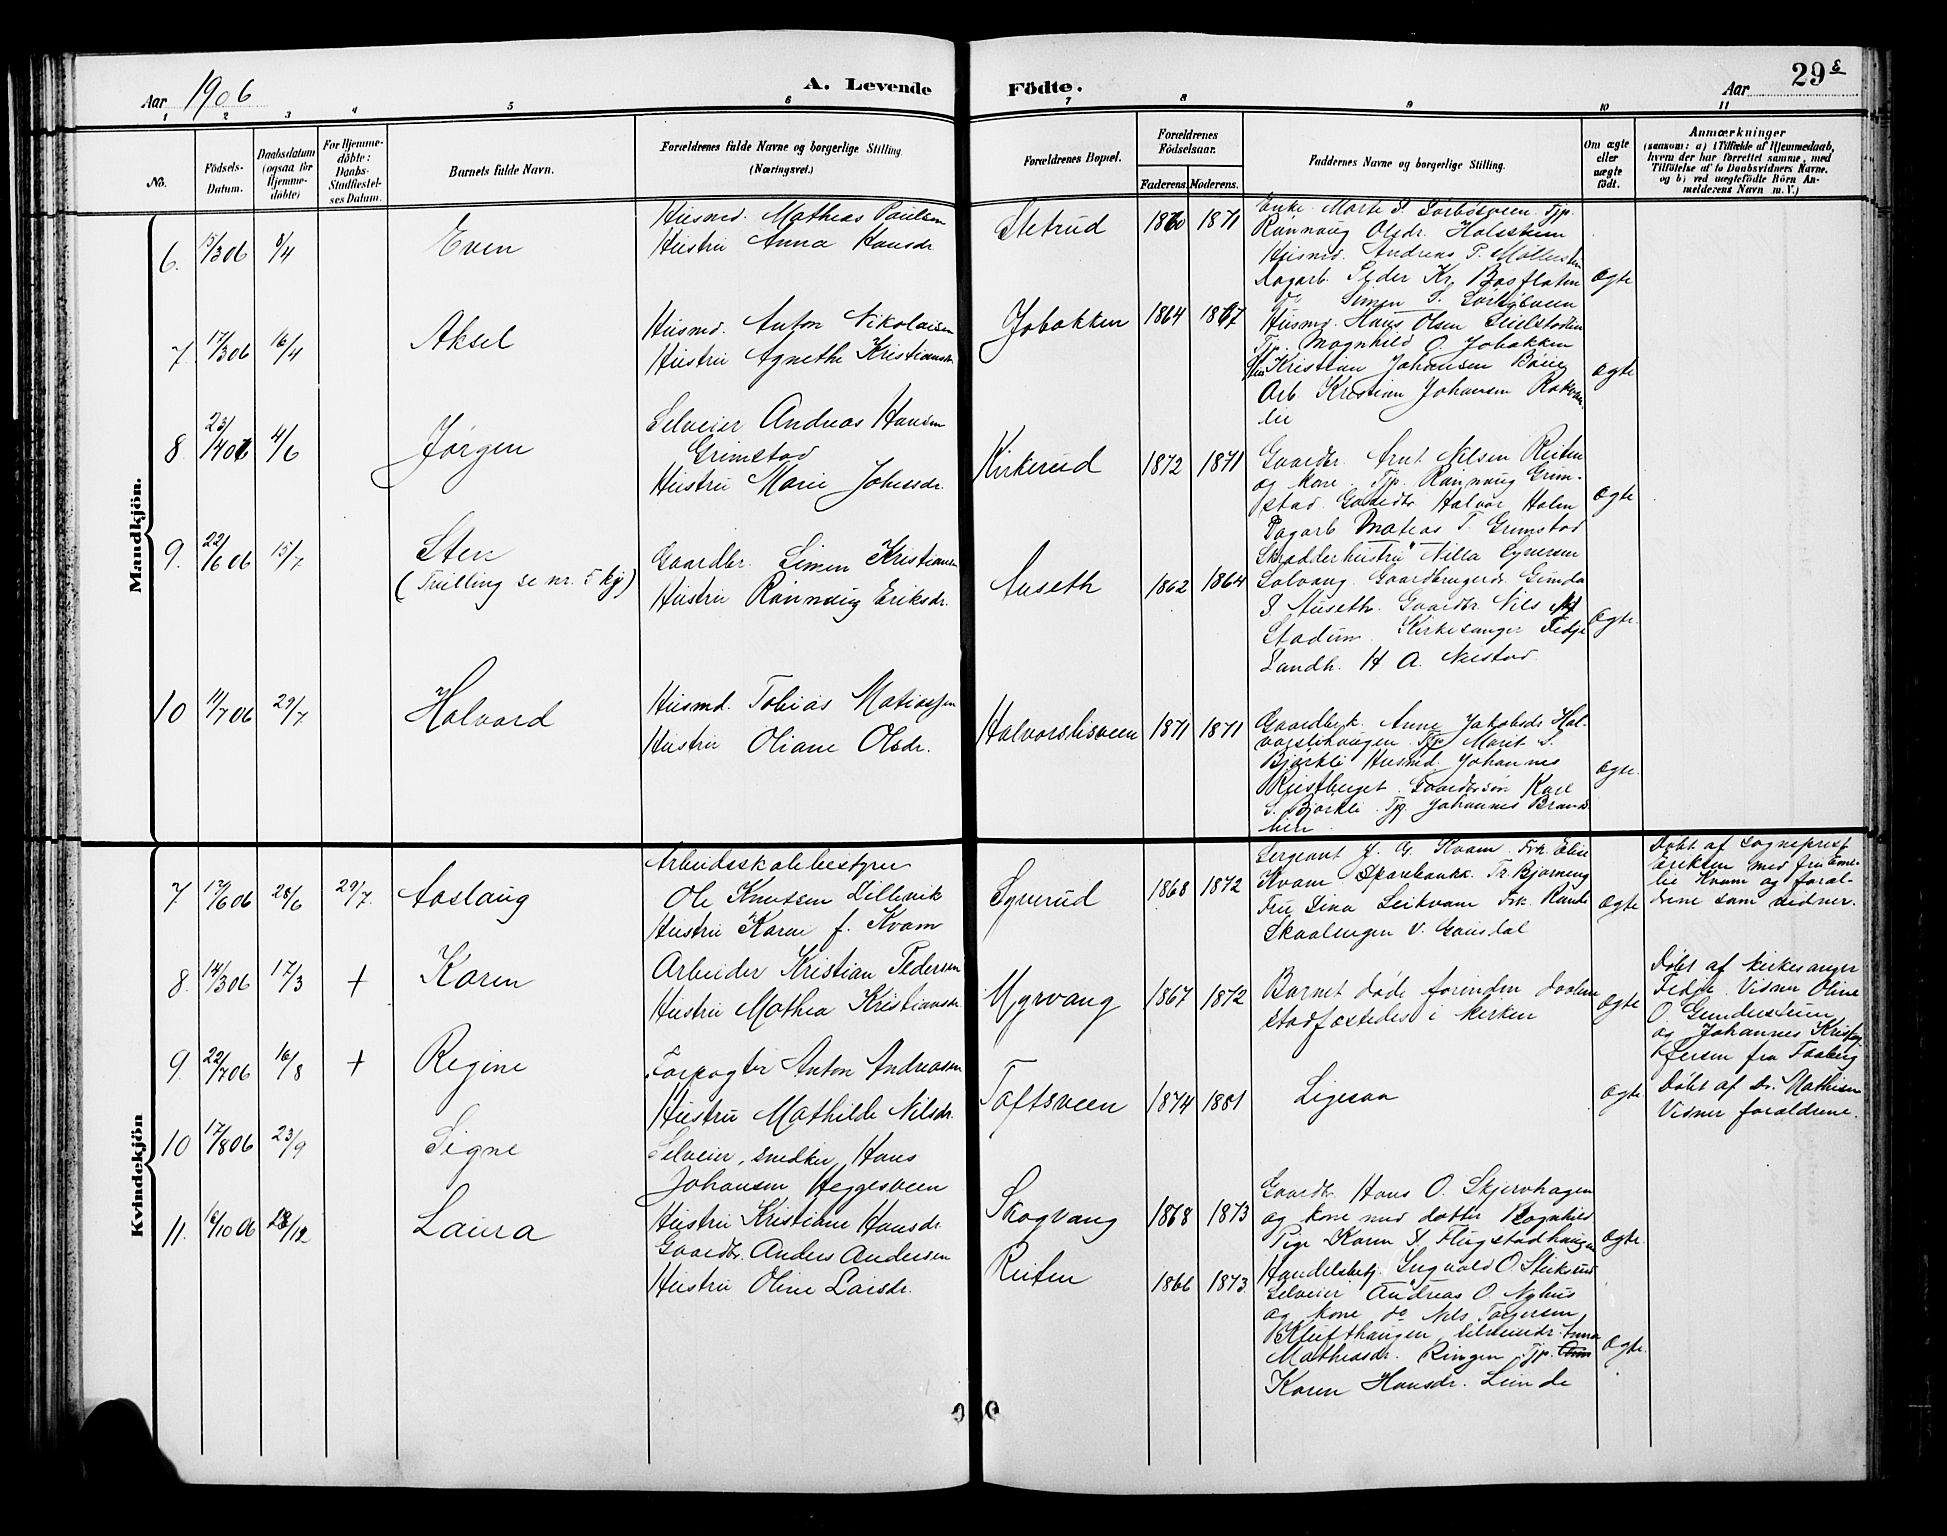 Aar 1906
A. Levende Födte.
Aar
29 8
1 2 3 4 5 6 7 8 9 10 11
No.
Födsels-Datum.
Daabsdatum (ogsaa for Hjemmedöbte)
For Hjemmedöbte: Daabs-Stadfæstelses Datum.
Barnets fulde Navn.
Forældrenes fulde Navne og borgerlige Stilling. (Næringsvei.)
Forældrenes Bopæl.
Forældrenes Födselsaar.
Faderens. Moderens.
Faddernes Navne og borgerlige Stilling.
Om ægte eller uægte födt.
Anmærkninger
(saasom: a) i Tilfælde af Hjemmedaab, hvem der har forrettet samme, med Tilföielse af to Daabsvidners Navne, og b) ved uægtefödte Börn Anmelderens Navn m. V.)
Mandkjön.
6. 15/3 06 8/4 Even
Husmd. Mathias Paulsen
Hustru Anna Hansdr
Stetrud 1870 1871
Enke Marte
Rønnaug Olsdr. Holsteien
Husmd. Andreas P.
Dagarb. Peder Kr. Bøsflaten
do Simen S.
Ægte
7 17/3 06 16/4 Aksel
Husmd. Anton Nikolaisen
Hustru Agnethe Kristiansdr
Jobakken 1864 1867
Husmd. Hans Olsen
Tjp. Magnhild O. Jobakken
Kristian Johansen Bøiie
Arb. Kristian Johansen Rokvam
lie
Ægte
8 23/4 06 4/6 Jørgen
Selveier Andreas Hansen
Grimstad
Hustru Marie Johnsdr.
Kirkerud 1872 1871
Gaardbr. Arnt Nilsen Reiten
og kone. Tjp. Rønnaug Grim-
stad. Gaardbr. Halvor Holm
Dagarb. Matias T. Grimstad
Ægte
9. 22/6 06 15/7 Sten
(Tvilling se nr. 5 kj)
Gaardbr. Simen Kristiansen
Hustru Rønnaug Eriksdr.
Auseth 1862 1864
Skrædderhustru Nilla Syversen
Solvang. Gaardbrugerdr. Gunda
S Auseth. Gaardbr Nils
Stadum. Kirkesanger Fedje
Landh. H A. Neistad
Ægte.
10 11/7 06 29/7 Halvard
Husmd. Tobias Matiassen
Hustru Oliane Olsdr.
Halvorslisveen 1871 1871
Gaardbrk. Anne Jakobsdr Hal-
vorslihaugen. Tjp Marit S.
Bjørkli Husmd. Johannes
Rustberget. Gaardbrsøn Karl
S. Bjørkli. Tjg. Johannes Brands-
lien
Ægte.
Kvindekjön
7 17/6 06 28/6 29/7. Aaslaug
Arbeidsskolebestyrer
Ole Knutsen Lillevik
Hustru Karen f. Kvam
Syverud 1868 1872
Sergeant J. G. Kvam. Frk. Elise
Kvam. Sparebankk. Tr. Bjørneng
Fru Lina Leikvam Frk. Randi
Skaalengen V. Gausdal
Ægte
Døbt af sogneprest
Eriksen med fru Eme-
lie Kvam og foræl-
drene som vidner.
8. 14/3 06 17/3 + Karen
Arbeider Kristian Pedersen
Hustru Mathea Kristiansdr
Myrvang 1867 1872
Barnet døde forinden daaben
stadfæstedes i kirken
Ægte
Døbt af kirkesanger
Fedje. Vidner Oline
O. Gunderstuen
og Johannes Kristof-
fersen fra Faaberg
9. 22/7 06 16/8 + Regine
Forpagter Anton Andreasen
Hustru Mathilde Nilsdr.
Toftsveen 1874 1881
Ligesaa
Ægte
Døbt af Dr. Mathisen
Vidner forældrene.
10 17/8 06 23/9 Signe
Selveier, snedker, Hans
Johansen Heggesveen
Hustru Kristiane Hansdr.
Skogvang 1868 1873
Gaardbr. Hans O. Skjervhagen
og kone med datter Ragnhild
Pige Karen A. Flugstadhaugen
Ægte.
11. 6/10 06 28/12 Laura
Gaardbr. Anders Andersen
Hustru Oline Larsdr.
Reiten 1866 1873.
Handelsbetj. Sigvald O.
Selveier Andreas O. Nyhus
og kone do Nils Torgersen
Klufthaugen, Anna
Mathiasdr. Ringen. Tjp.
Karen Hansdr. Lunde
Ægte.